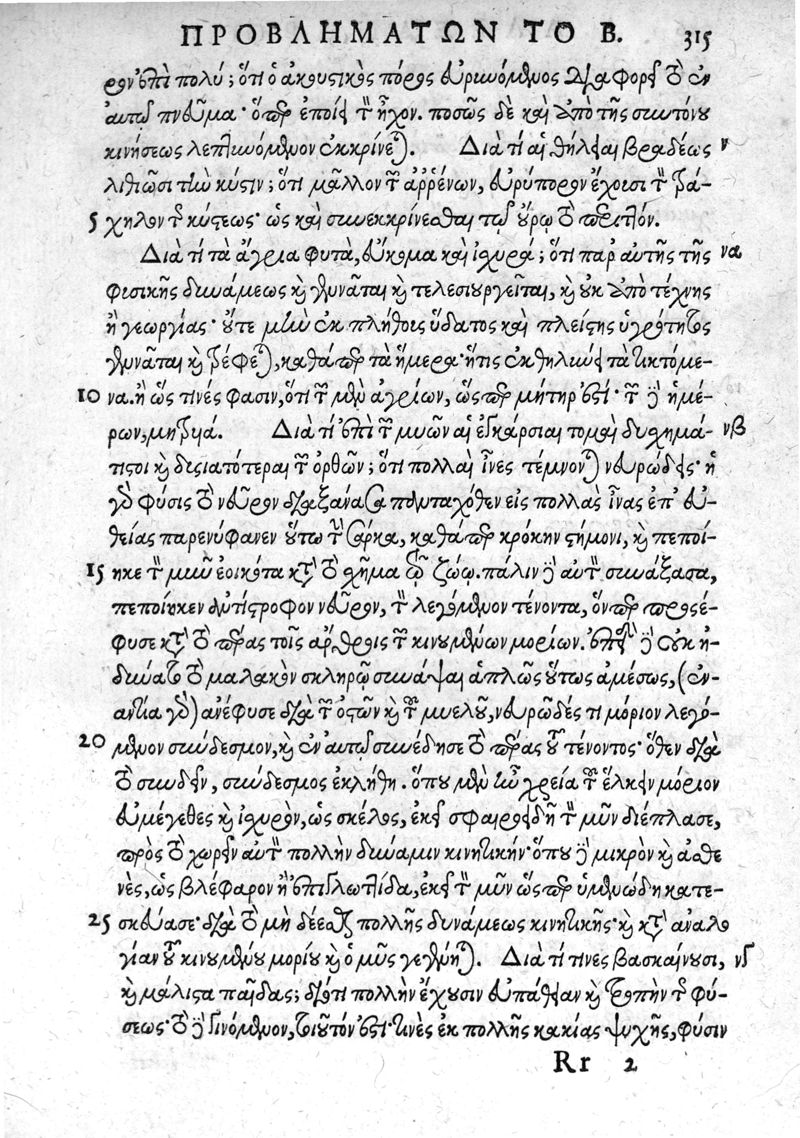 ΠΡΟΒΛΗΜΑΤΩΝ ΤΟ Β. 315
ρον ἐπὶ πολύ; ὅτι ὁ ἀκουστικὸς πόρος εὐρυνόμενος διαφορεῖ τὸ ἐν
αὐτῷ πνεῦμα· ὅπερ ἐποίει τὸν ἦχον. ποσῶς δὲ καὶ ἀπὸ τῆς συντόνου
κινήσεως λεπτυνόμενον ἐκκρίνεται. Διὰ τί αἱ θήλειαι βραδέως ν
λιθιῶσι τὴν κύστιν; ὅτι μᾶλλον τῶν ἀῤῥένων, εὐρύπορον ἔχουσι τὸν τρά-
5 χηλον τῆς κύστεως· ὡς καὶ συνεκκρίνεσθαι τῷ οὔρῳ τὸ περιττόν.
Διὰ τί τὰ ἄγρια φυτὰ, εὔκομα καὶ ἰσχυρά; ὅτι παρ' αὐτῆς τῆς να
φυσικῆς δυνάμεως καὶ γεννᾶται καὶ τελεσιουργεῖται, καὶ οὐκ ἀπὸ τέχνης
ἢ γεωργίας· οὔτε μὴν ἐκ πλήθους ὕδατος καὶ πλείστης ὑγρότητος
γεννᾶται καὶ τρέφεται, καθάπερ τὰ ἥμερα· ἥτις ἐκθηλύνει τὰ τικτόμε-
10 να. ἢ ὥς τινές φασιν, ὅτι τῶν μὲν ἀγρίων, ὥσπερ μήτηρ ἐστί· τῶν δὲ ἡμέ-
ρων, μητρυιά. Διὰ τί ἐπὶ τῶν μυῶν αἱ ἐγκάρσιαι τομαὶ δυσχημά- νβ
τιστοι καὶ δυσιατότεραι τῶν ὀρθῶν; ὅτι πολλαὶ ἶνες τέμνονται νευρώδεις· ἡ
γὰρ φύσις τὸ νεῦρον διαξάνασα πανταχόθεν εἰς πολλὰς ἶνας ἐπ' εὐ-
θείας παρενύφανεν οὕτω τὴν σάρκα, καθάπερ κρόκην στήμονι, καὶ πεποί-
15 ηκε τὸν μῦν ἐοικότα κατὰ τὸ σχῆμα τῷ ζώῳ. πάλιν δὲ αὐτὸν συνάξασα,
πεποίηκεν ἀντίστροφον νεῦρον, τὸν λεγόμενον τένοντα, ὅνπερ προσέ-
φυσε κατὰ τὸ πέρας τοῖς ἄρθροις τῶν κινουμένων μορίων. ἐπεὶ δὲ οὐκ ἠ-
δύνατο τὸ μαλακὸν σκληρῷ συνάψαι ἁπλῶς οὕτως ἀμέσως, (ἐν-
αντία γὰρ) ἀνέφυσε διὰ τῶν ὀστῶν καὶ τοῦ μυελοῦ, νευρῶδές τι μόριον λεγό-
20 μενον σύνδεσμον, καὶ ἐν αὐτῷ συνέδησε τὸ πέρας τοῦ τένοντος· ὅθεν διὰ
τὸ συνδεῖν, σύνδεσμος ἐκλήθη. ὅπου μὲν ἦν χρεία τῶν ἕλκειν μόριον
εὐμέγεθες καὶ ἰσχυρὸν, ὡς σκέλος, ἐκεῖ σφαιροειδῆ τὸν μῦν διέπλασε,
πρὸς τὸ χωρεῖν αὐτὸν πολλὴν δύναμιν κινητικήν· ὅπου δὲ μικρὸν καὶ ἀσθε
νὲς, ὡς βλέφαρον ἢ ἐπιγλωττίδα, ἐκεῖ τὸν μῦν ὥσπερ ὑμενώδη κατε-
25 σκεύασε· διὰ τὸ μὴ δέεσθαι πολλῆς δυνάμεως κινητικῆς· καὶ κατ' ἀναλο
γίαν τοῦ κινουμένου μορίου καὶ ὁ μῦς γεγένηται. Διὰ τί τινες βασκαίνουσι, νγ
καὶ μάλιστα παῖδας; διότι πολλὴν ἔχουσιν εὐπάθειαν καὶ τροπὴν τῆς φύ-
σεως· τὸ δὲ γινόμενον, τοιοῦτόν ἐστι· τινὲς ἐκ πολλῆς κακίας ψυχῆς, φύσιν
Rr 2